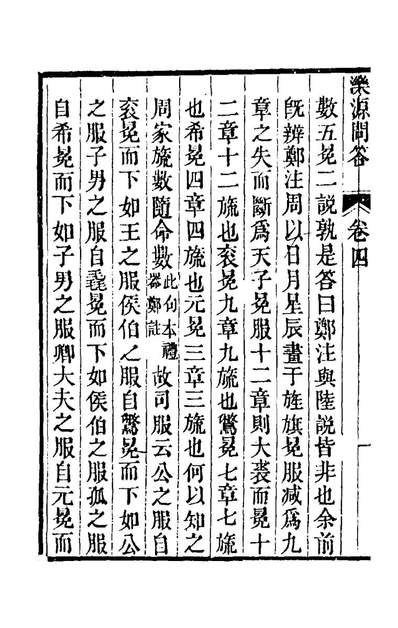 濼源問答 卷四
數五冕二說孰是答曰鄭注與陸說皆非也余前
旣辨鄭注周以日月星辰畫于旌旗冕服減爲九
章之失而斷爲天子冕服十二章則大裘而冕十
二章十二旒也袞冕九章九旒也鷩冕七章七旒
也希冕四章四旒也元冕三章三旒也何以知之
周家旒數隨命數此句本禮器鄭註故司服云公之服自
袞冕而下如王之服侯伯之服自鷩冕而下如公
之服子男之服自毳冕而下如侯伯之服孤之服
自希冕而下如子男之服卿大夫之服自元冕而